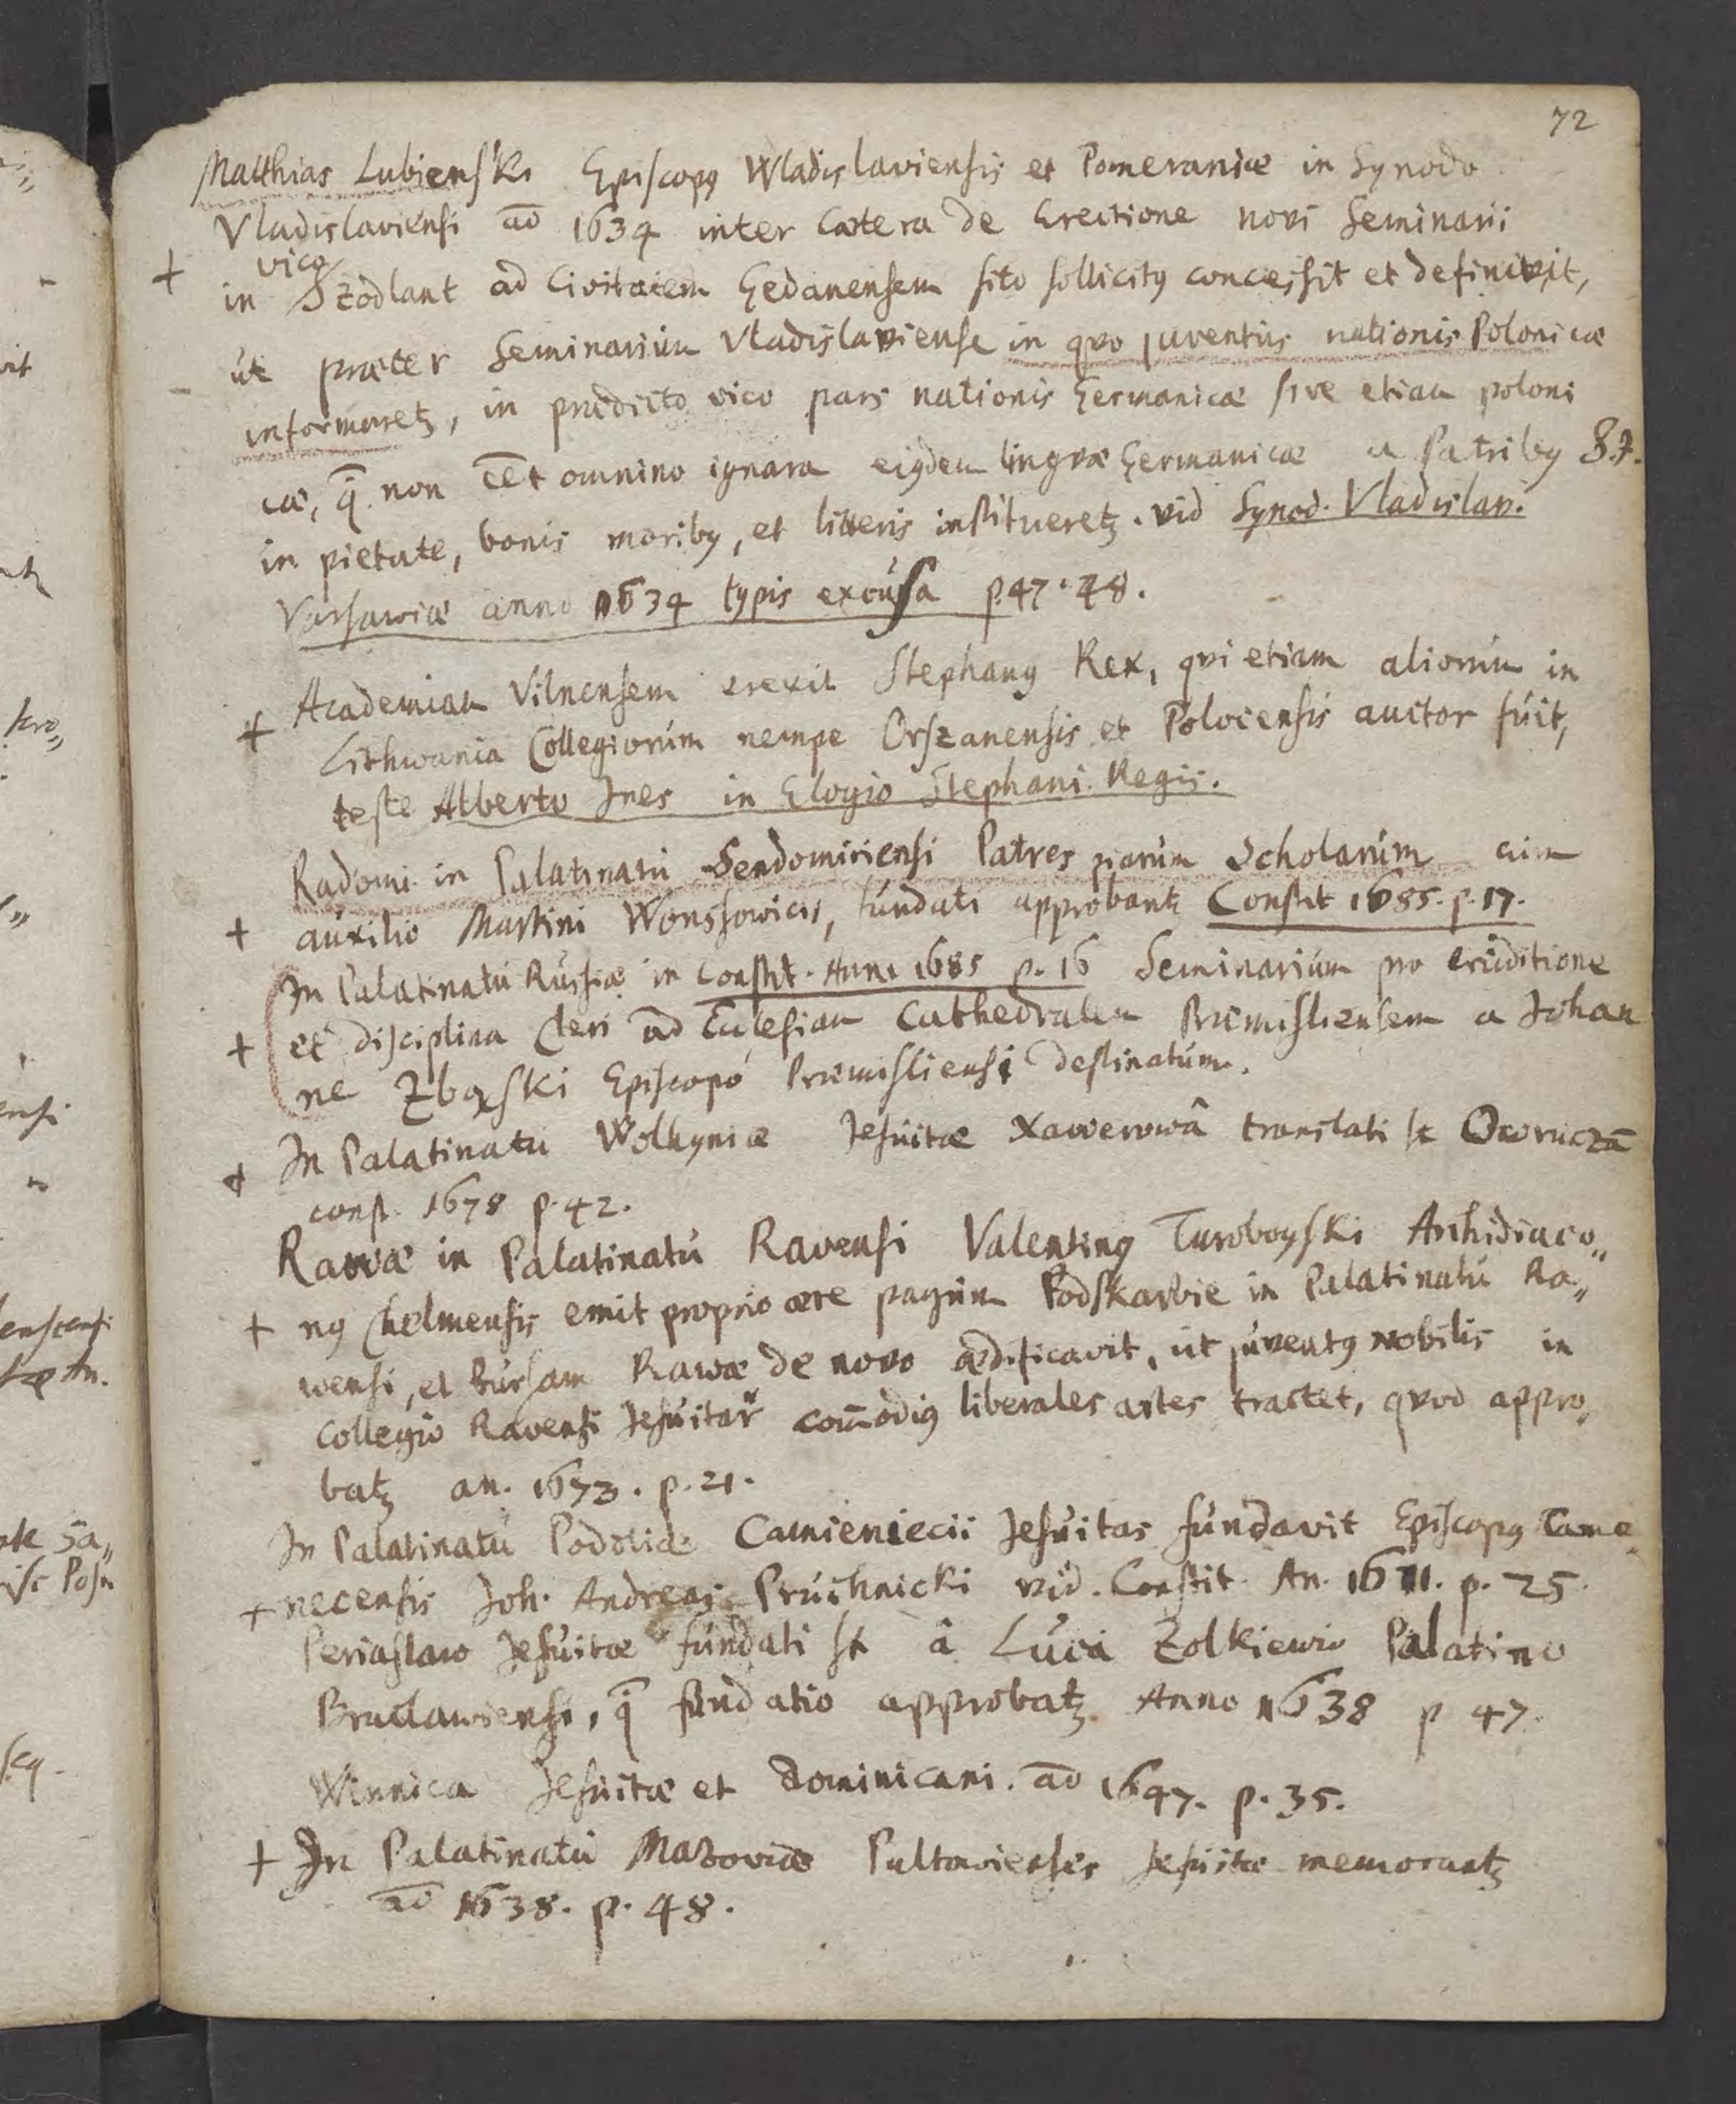 72
Matthias Lubienski Episcopꝰ Wladislaviensis et Pomeraniæ in Synodo
Vladislaviensi aō 1634 inter cætera de Erectione novi Seminarii
+ in vico Szodlant ad Civitatem Gedanensem sito sollicitꝰ concessit et definivit,
ut præter Seminarium Vladislaviense in qvo juventus nationis Polonicæ
informaretꝫ, in prædicto vico pars nationis Germanicæ sive etiam poloni
cæ, q̄ non eēt omnino ignara eiꝰdem lingvæ Germanicæ a Patribꝰ S.J.
in pietate, bonis moribꝰ, et litteris institueretꝫ. vid Synod. Vladislav.
Varsaviæ anno 1634 typis excusa p. 47. 48.
+ Academiam Vilnensem erexit Stephanꝰ Rex, qvi etiam aliorum in
Lithwania Collegiorum nempe Orszanensis et Polocensis auctor fuit,
teste Alberto Ines in Elogio Stephani Regis.
Radomi in Palatinatu Sendomiriensi Patres piarum Scholarum cum
+ auxilio Martini Wonsowicii, fundati approbantꝫ Constit 1685. p. 17.
In Palatinatu Russiæ in Constit. Anni 1685 p. 16 Seminarium pro eruditione
+ et disciplina Cleri ad Ecclesiam Cathedralem Præmisliensem a Johan
ne Zbąski Episcopo Præmisliensi destinatum.
+ In Palatinatu Wolhyniæ Jesuitæ Xawerowâ translati st Owruczā
const. 1678 p. 42.
Rawæ in Palatinatu Ravensi Valentinꝰ Turoboyski Archidiaco„
+ nꝰ Chelmensis emit proprio ære pagum Podskarbie in Palatinatu Ra„
wensi, et bursam Rawæ de novo ædificavit, ut juventꝰ Nobilis in
collegio Ravensi Jesuitar com̄odiꝰ liberales artes tractet, qvod appro„
batꝫ an. 1673. p. 21.
In Palatinatu Podoliæ Camieniecii Jesuitas fundavit Episcopꝰ Came„
+ necensis Joh. Andreas Pruchnicki vid. Constit. An. 1611. p. 25.
Periaslaw Jesuitæ fundati st â Luca Zolkiewio Palatino
Braclawiensi, q̄ fundatio approbatꝫ Anno 1638 p 47.
Winnica Jesuitæ et Dominicani. aō 1647. p. 35.
+ In Palatinatu Mazoviæ Pultovienses Jesuitæ memorantꝫ
aō 1638. p. 48.